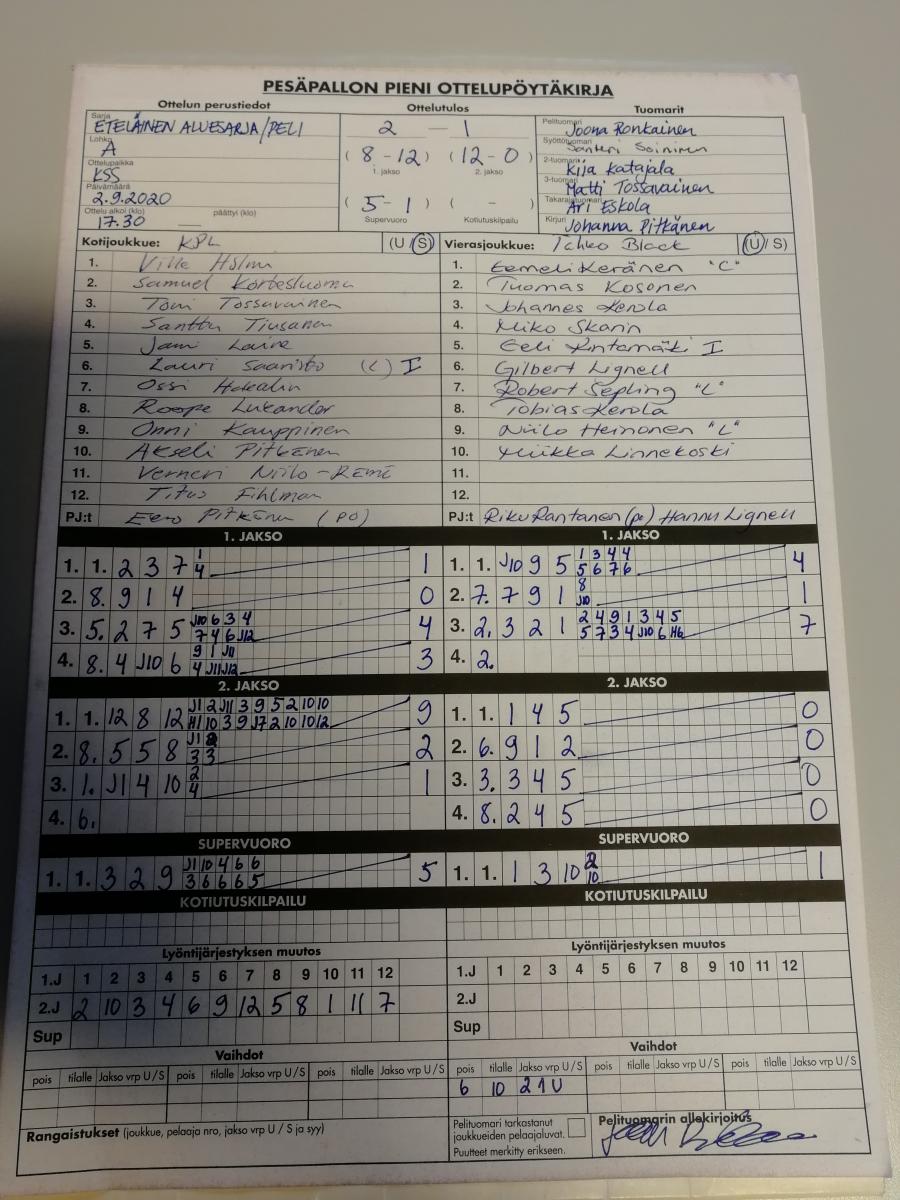 PESÄPALLON PIENI OTTELUPÖYTÄKIRJA
Ottelun perustiedot Ottelutulos Tuomarit
Sarja ETELÄINEN ALUESARJA/PELI
Lohko A
Ottelupaikka KSS
Päivämäärä 2.9.2020
Ottelu alkoi (klo) 17.30 päättyi (klo)
2 — 1
(8-12) (12-0)
1. jakso 2. jakso
(5-1) ( - )
Supervuoro Kotiutuskilpailu
Pelituomari Joona Ronkainen
Syöttötuomari Santeri Soininen
2-tuomari Kija Katajala
3-tuomari Matti Tossavainen
Takarajatuomari Ari Eskola
Kirjuri Johanna Pitkänen
Kotijoukkue: KPL (U/S)
1. Ville Holm
2. Samuel Kortesluoma
3. Toni Tossavainen
4. Santtu Tiusanen
5. Jami Laine
6. Lauri Saaristo (L) I
7. Ossi
8. Roope Lukander
9. Onni Kauppinen
10. Akseli Pitkänen
11. Verneri Niilo-Rämä
12. Titus Fihlman
PJ:t Eero Pitkänen (PO)
Vierasjoukkue: Tahko Black (U/S)
1. Eemeli Keränen "C"
2. Tuomas Kosonen
3. Johannes Kerola
4. Miko Skarin
5. Eeli Rintamäki I
6. Gilbert Lignell
7. Robert Sepling "L"
8. Tobias Kerola
9. Niilo Heinonen "L"
10. Miikka Linnekoski
11.
12.
PJ:t Riku Rantanen (p) Hannu Lignell
1. JAKSO
1. 1. 2 3 7 1 4 1
2. 8. 9 1 4 0
3. 5. 2 7 5 J10 6 3 4 7 4 6 J12 4
4. 8. 4 J10 6 9 1 J11 4 J11 J12 3
1. JAKSO
1. 1. J10 9 5 1 3 4 4 5 6 7 6 4
2. 7. 7 9 1 8 J10 1
3. 2. 3 2 1 2 4 9 1 3 4 5 5 7 3 4 J10 6 H6 7
4. 2.
2. JAKSO
1. 1. 12 8 12 J1 2 J11 3 9 5 2 10 10 H1 10 3 9 J7 2 10 10 12 9
2. 8. 5 5 8 J1 3 3 2
3. 1. J1 4 10 2 4 1
4. 6.
2. JAKSO
1. 1. 1 4 5 0
2. 6. 9 1 2 0
3. 3. 3 4 5 0
4. 8. 2 4 5 0
SUPERVUORO
1. 1. 3 2 9 J1 10 4 6 6 3 6 6 6 5 5
SUPERVUORO
1. 1. 1 3 10 2 10 1
KOTIUTUSKILPAILU
KOTIUTUSKILPAILU
Lyöntijärjestyksen muutos
1.J 1 2 3 4 5 6 7 8 9 10 11 12
2.J 2 10 3 4 6 9 12 5 8 1 11 7
Sup
Lyöntijärjestyksen muutos
1.J 1 2 3 4 5 6 7 8 9 10 11 12
2.J
Sup
Vaihdot
pois tilalle Jakso vrp U/S pois tilalle Jakso vrp U/S pois tilalle Jakso vrp U/S
Vaihdot
pois tilalle Jakso vrp U/S pois tilalle Jakso vrp U/S pois tilalle Jakso vrp U/S
6 10 2 1 U
Rangaistukset (joukkue, pelaaja nro, jakso vrp U/S ja syy)
Pelituomari tarkastanut
joukkueiden pelaajaluvat.
Puutteet merkitty erikseen.
Pelituomarin allekirjoitus